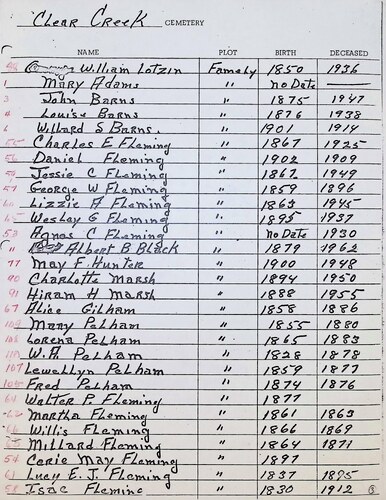 Clear Creek CEMETERY
NAME PLOT BIRTH DECEASED
William Lotzin Famely 1850 1936
1 Mary Adams " No Date —
3 John Barns " 1875 1947
4 Louise Barns " 1876 1938
6 Willard S Barns. " 1901 1914
Charles E Fleming " 1867 1925
56 Daniel Fleming " 1902 1909
59 Jessie C Fleming " 1867 1949
57 George W Fleming " 1859 1896
60 Lizzie A Fleming " 1863 1945
65 Wesley G Fleming " 1895 1937
53 Agnas C Fleming " No Date 1930
11 Albert B Black " 1879 1962
77 May F. Hunter " 1900 1948
90 Charlotte Marsh " 1894 1950
91 Hiram H Marsh " 1888 1955
67 Alice Gilham " 1858 1886
Mary Pelham " 1855 1880
Lorena Pelham " 1865 1883
W.A. Pelham " 1828 1878
107 Lewellyn Pelham " 1859 1877
Fred Pelham " 1874 1876
64 Walter P. Fleming " 1877
62 Martha Fleming " 1861 1863
66 Willis Fleming " 1866 1869
63 Millard Fleming " 1864 1871
54 Carie May Fleming " 1897
61 Lucy E. J. Fleming " 1837 1895
58 Isac Fleming " 1830 1912